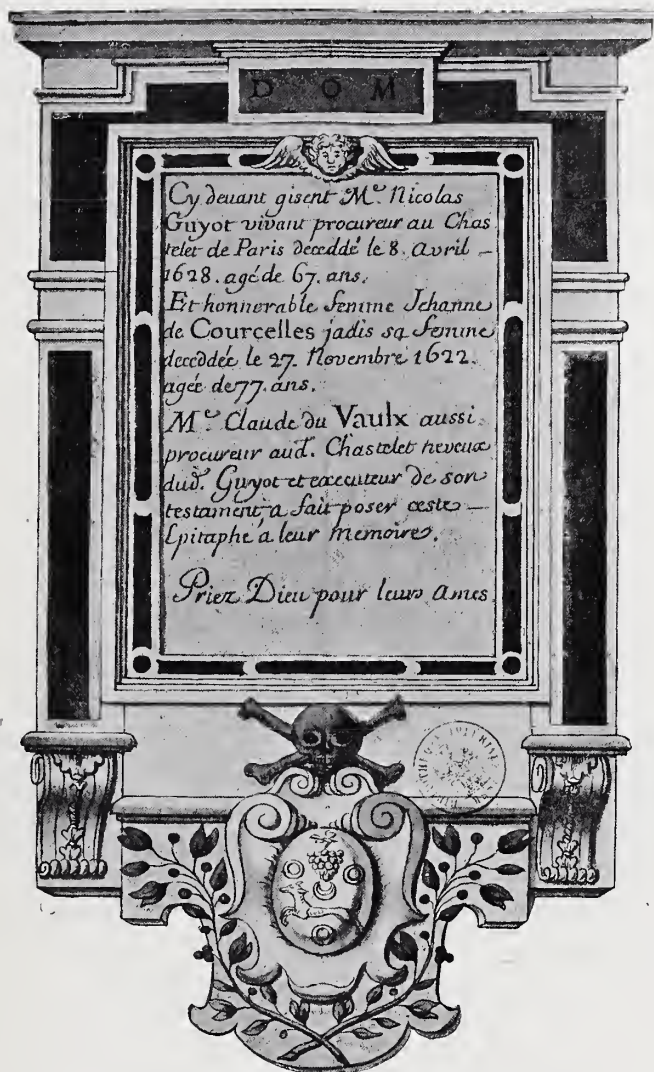 D O M
Cy devant gisent M.e Nicolas
Guyot vivant procureur au Chas
telet de Paris deceddé le 8. Avril –
1628. agé de 67. ans.
Et honnorable femme Jehanne
de Courcelles jadis sa femme
deceddée le 27. Novembre 1622.
agée de 77. ans.
M.e Claude du Vaulx aussi
procureur aud. Chastelet neveux
dud. Guyot et executeur de son
testament a fait poser ceste –
Epitaphe a leur memoire.
Priez Dieu pour leurs ames